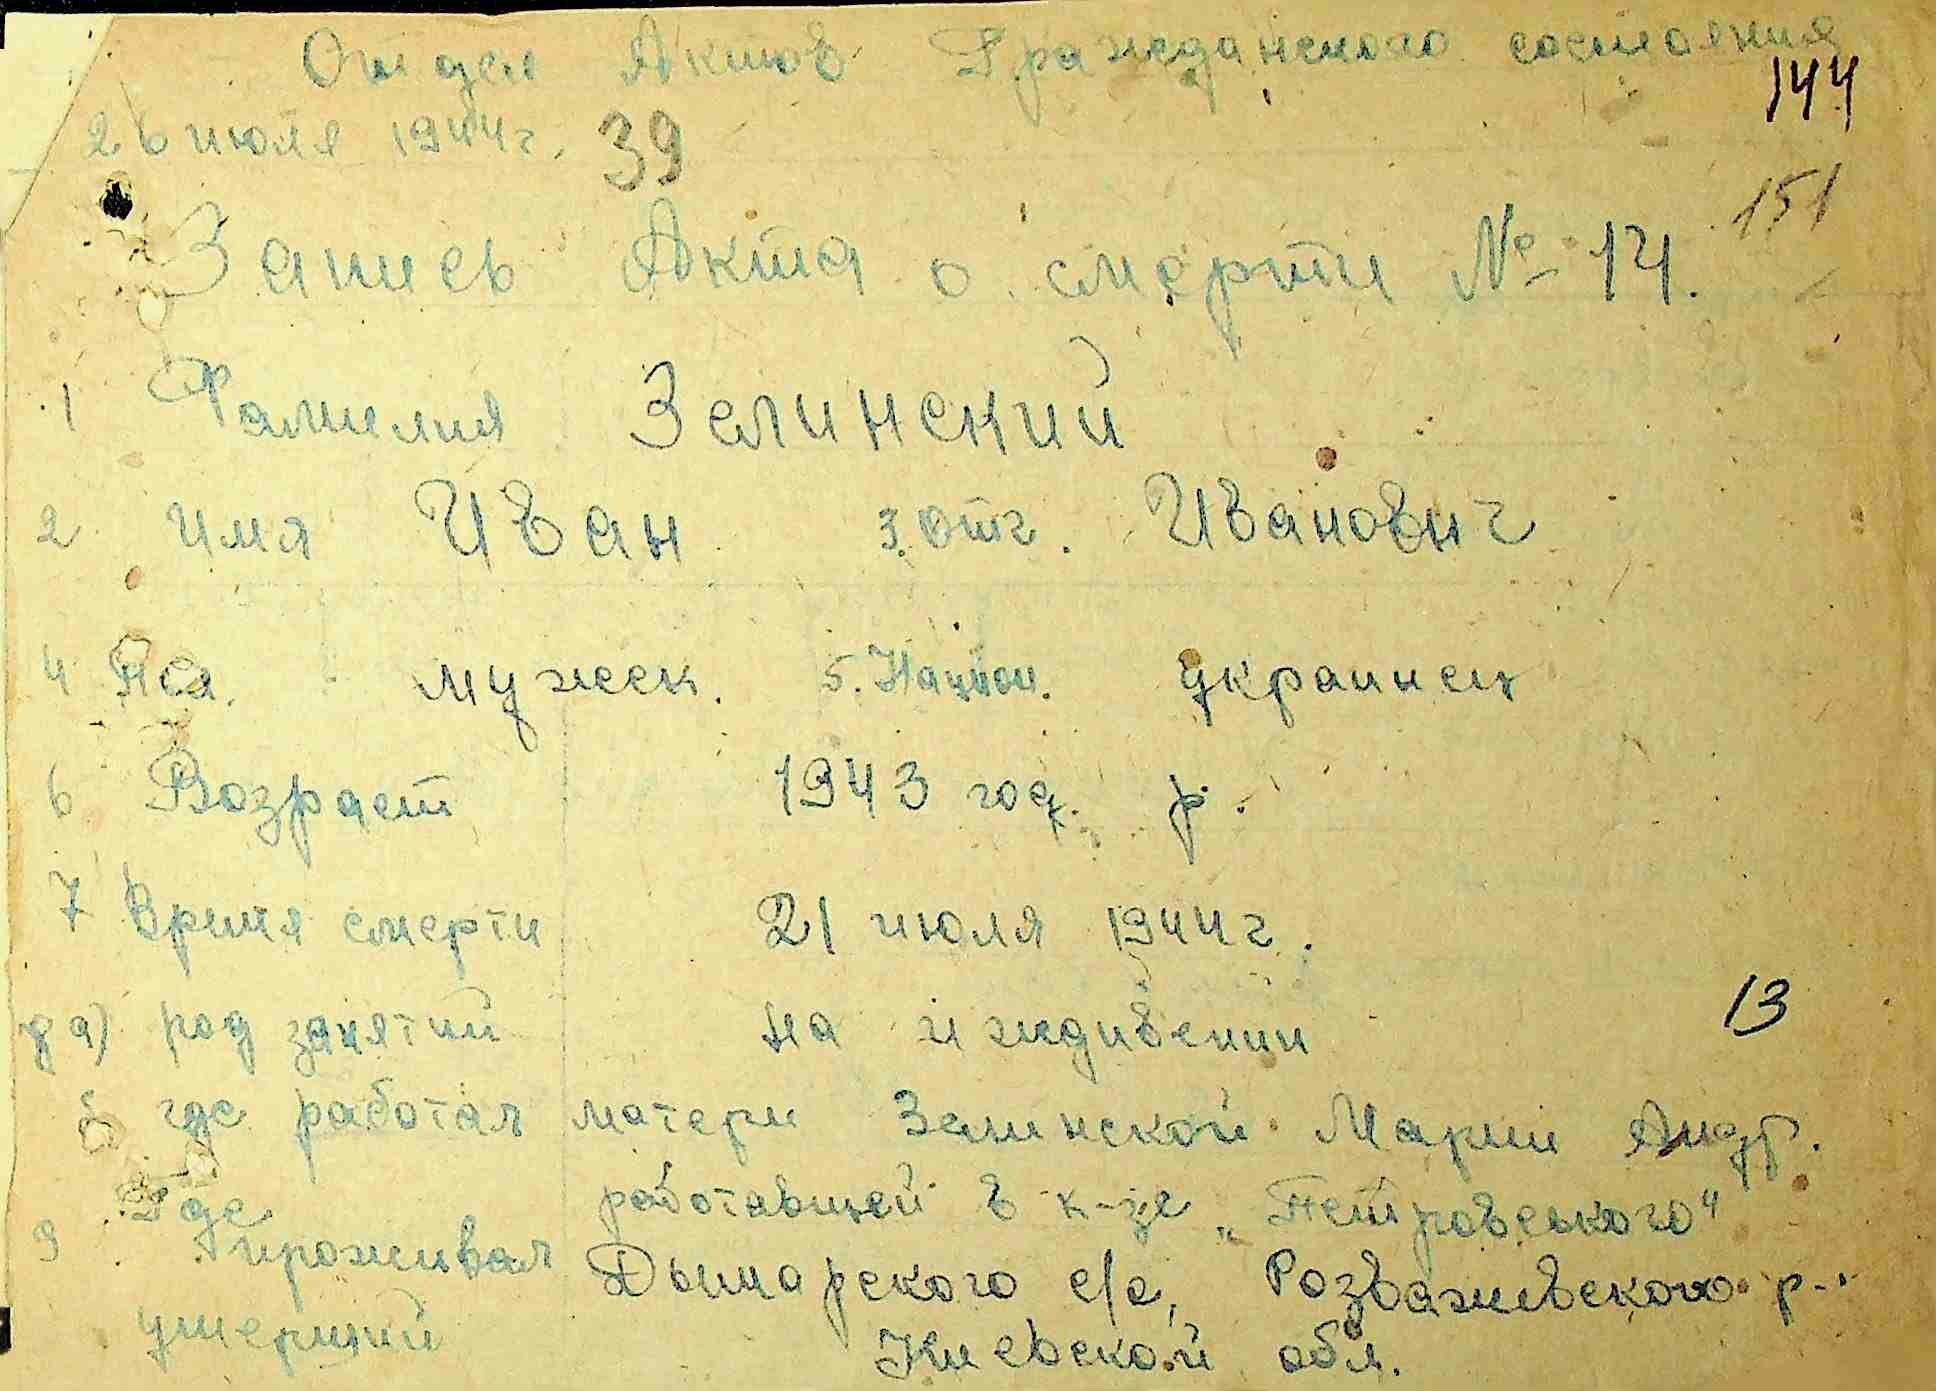 Отдел Актов Гражданского состояния
144
26 июля 1944 г. 39
151
Запись Акта о смерти № 14.
1 Фамилия Зелинский
2 имя Иван 3. Отч. Иванович
4 Пол мужск. 5. Национ. украинец
6 Возраст 1943 год. р.
7 Время смерти 21 июля 1944 г.
8 а) род занятий на иждивении
13
б где работал матери Зелинской Марии Андр.
9 Где работавшей в к-зе „Петровського"
проживал Дымарского с/с, Розважевского р-.
умерший Киевской обл.